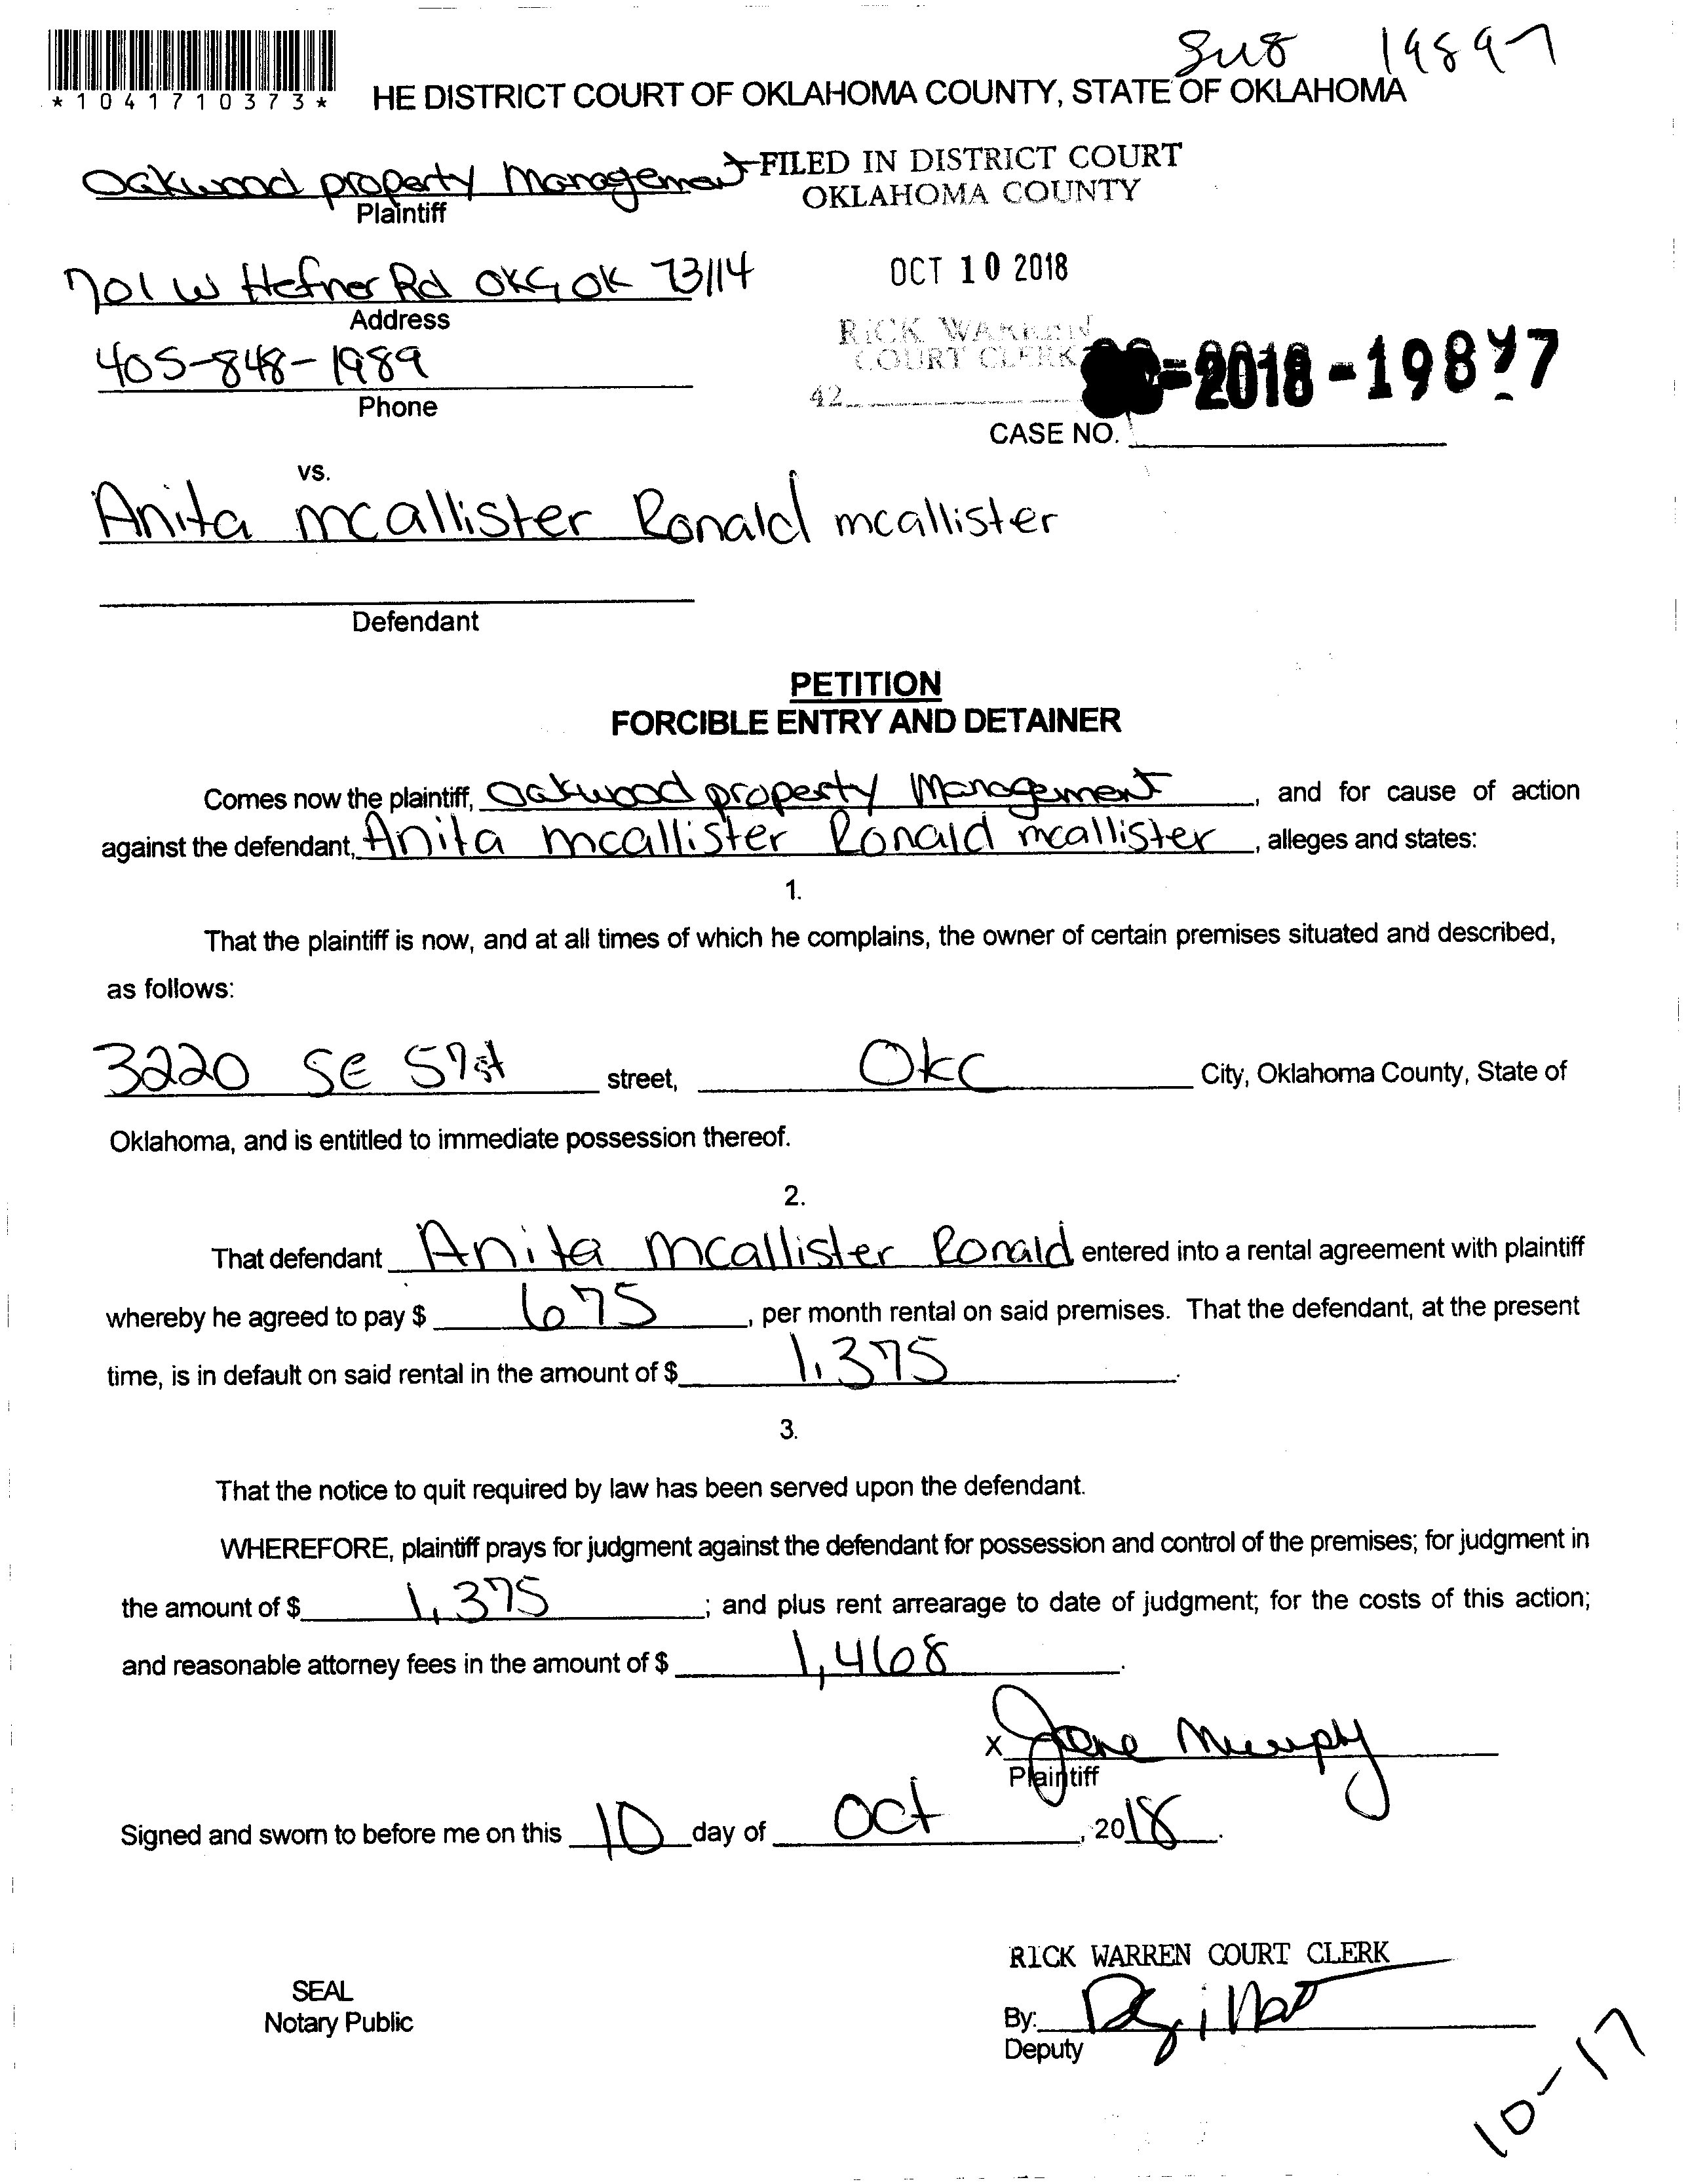 19897
*1041710373*
HE DISTRICT COURT OF OKLAHOMA COUNTY, STATE OF OKLAHOMA
Oakwood property Management
Plaintiff
FILED IN DISTRICT COURT
OKLAHOMA COUNTY
701 W Hefner Rd OKC, OK 73114
Address
OCT 10 2018
405-848-1989
Phone
RICK WARREN
COURT CLERK
42
-2018-198 7
CASE NO.
vs.
Anita mcallister Ronald mcallister
Defendant
PETITION
FORCIBLE ENTRY AND DETAINER
Comes now the plaintiff, Oakwood property Management, and for cause of action
against the defendant, Anita mcallister Ronald mcallister, alleges and states:
1.
That the plaintiff is now, and at all times of which he complains, the owner of certain premises situated and described,
as follows:
3220 SE 57 st street, OKC City, Oklahoma County, State of
Oklahoma, and is entitled to immediate possession thereof.
2.
That defendant Anita mcallister Ronald entered into a rental agreement with plaintiff
whereby he agreed to pay $ 675, per month rental on said premises. That the defendant, at the present
time, is in default on said rental in the amount of $ 1,375.
3.
That the notice to quit required by law has been served upon the defendant.
WHEREFORE, plaintiff prays for judgment against the defendant for possession and control of the premises; for judgment in
the amount of $ 1,375; and plus rent arrearage to date of judgment; for the costs of this action;
and reasonable attorney fees in the amount of $ 1,468.
X Jane Murphy
Plaintiff
Signed and sworn to before me on this 10 day of Oct, 2018.
RICK WARREN COURT CLERK
SEAL
Notary Public
By:
Deputy
10-17